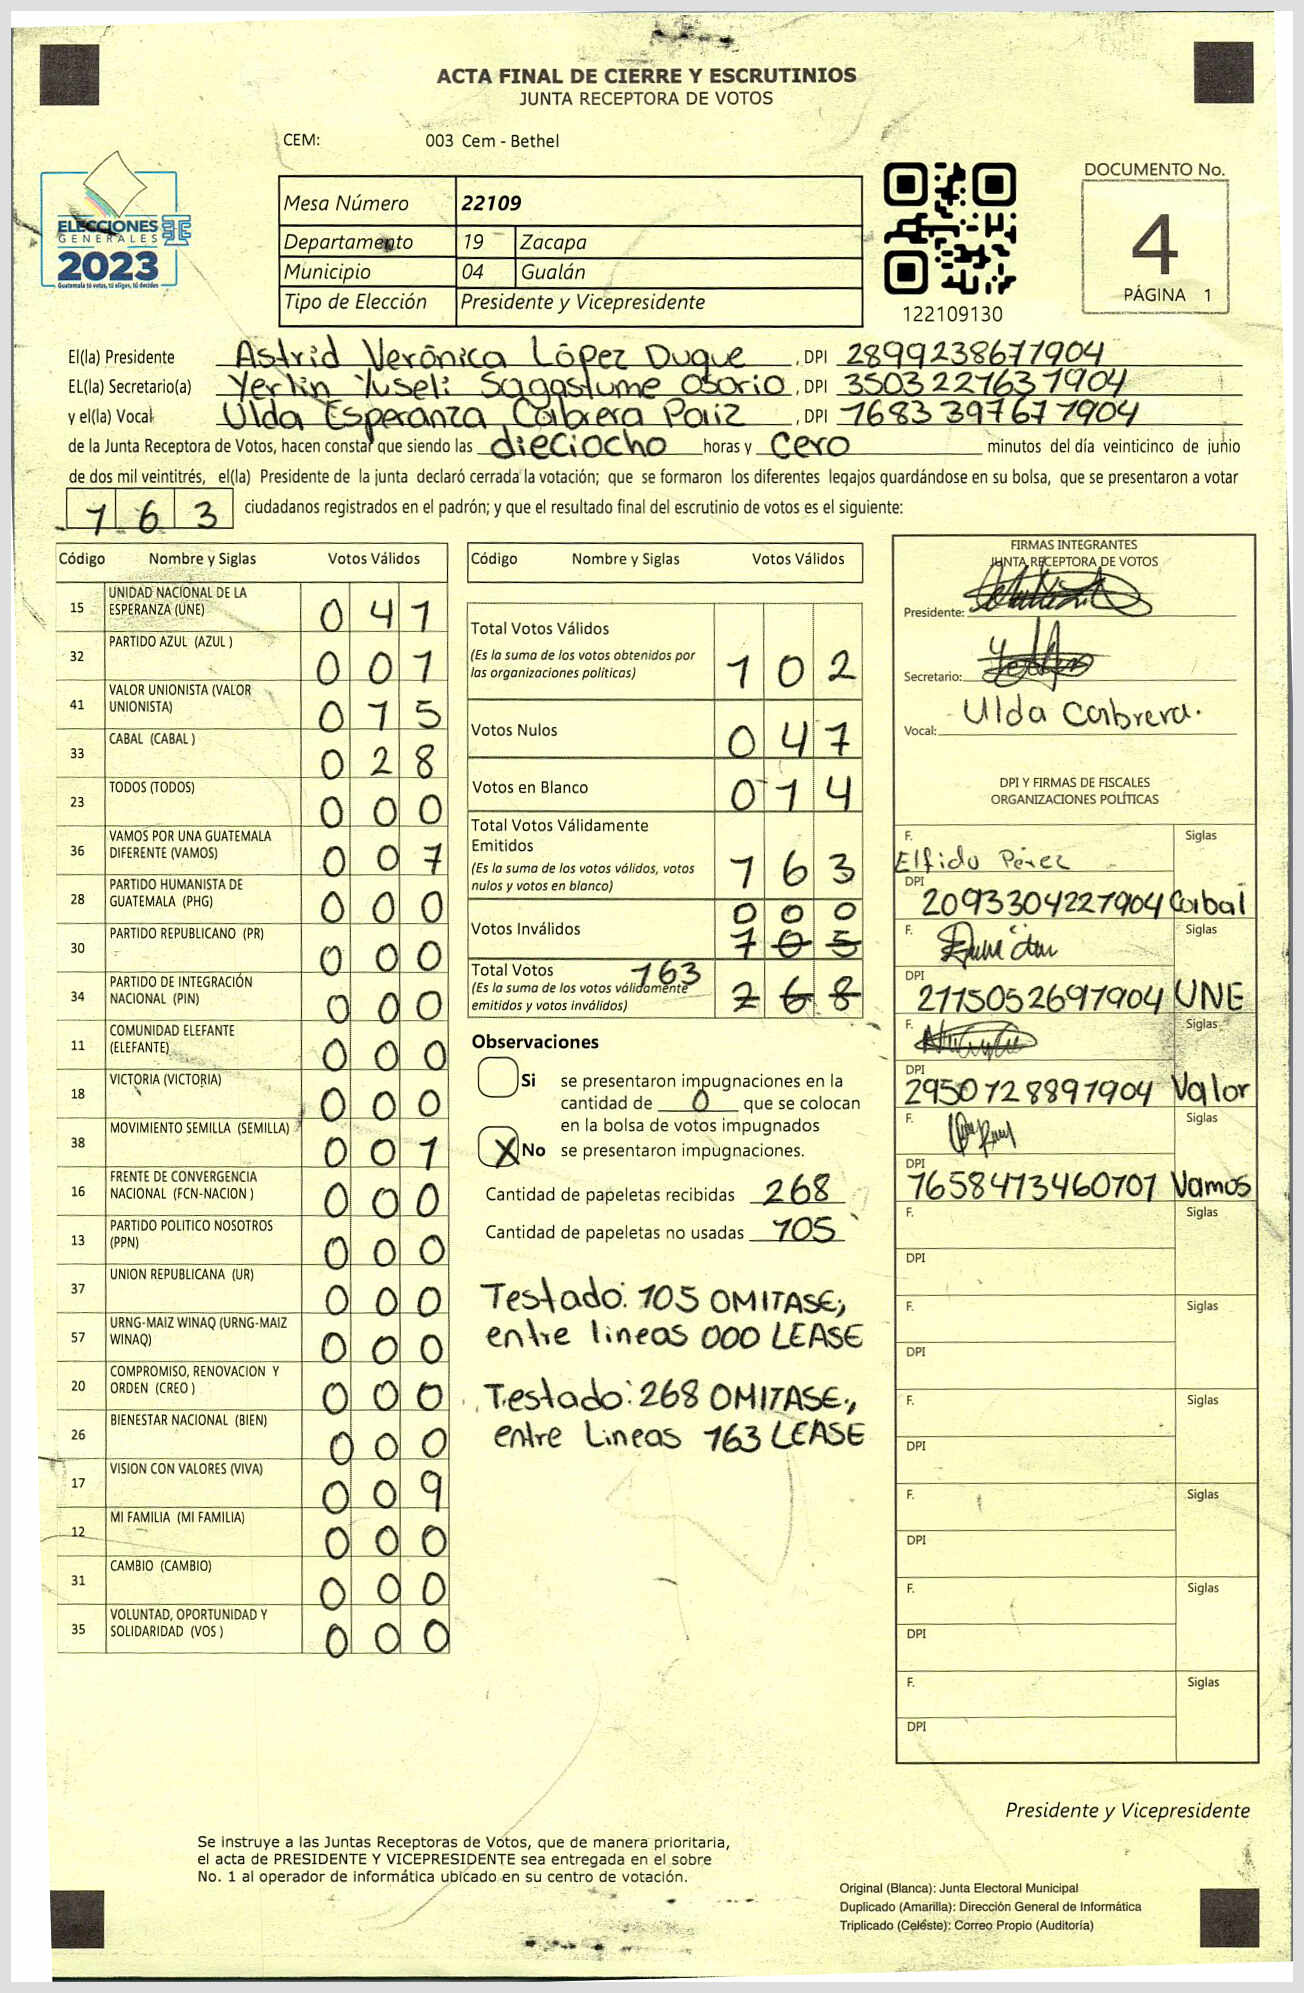 ACTA FINAL DE CIERRE Y ESCRUTINIOS
JUNTA RECEPTORA DE VOTOS
CEM: 003 Cem - Bethel
ELECCIONES
GENERALES
2023
Guatemala tú votas, tú eliges, tú decides
Mesa Número 22109
Departamento 19 Zacapa
Municipio 04 Gualán
Tipo de Elección Presidente y Vicepresidente
122109130
DOCUMENTO No.
4
PÁGINA 1
El(la) Presidente Astrid Verónica López Duque , DPI 2899238671904
EL(la) Secretario(a) Yerlin Yuseli Sagastume Osorio , DPI 3503221631904
y el(la) Vocal Ulda Esperanza Cabrera Paiz , DPI 1683397671904
de la Junta Receptora de Votos, hacen constar que siendo las dieciocho horas y cero minutos del día veinticinco de junio
de dos mil veintitrés, el(la) Presidente de la junta declaró cerrada la votación; que se formaron los diferentes legajos guardándose en su bolsa, que se presentaron a votar
163 ciudadanos registrados en el padrón; y que el resultado final del escrutinio de votos es el siguiente:
Código Nombre y Siglas Votos Válidos
15 UNIDAD NACIONAL DE LA ESPERANZA (UNE) 041
32 PARTIDO AZUL (AZUL ) 001
41 VALOR UNIONISTA (VALOR UNIONISTA) 015
33 CABAL (CABAL ) 028
23 TODOS (TODOS) 000
36 VAMOS POR UNA GUATEMALA DIFERENTE (VAMOS) 007
28 PARTIDO HUMANISTA DE GUATEMALA (PHG) 000
30 PARTIDO REPUBLICANO (PR) 000
34 PARTIDO DE INTEGRACIÓN NACIONAL (PIN) 000
11 COMUNIDAD ELEFANTE (ELEFANTE) 000
18 VICTORIA (VICTORIA) 000
38 MOVIMIENTO SEMILLA (SEMILLA) 001
16 FRENTE DE CONVERGENCIA NACIONAL (FCN-NACION ) 000
13 PARTIDO POLITICO NOSOTROS (PPN) 000
37 UNION REPUBLICANA (UR) 000
57 URNG-MAIZ WINAQ (URNG-MAIZ WINAQ) 000
20 COMPROMISO, RENOVACION Y ORDEN (CREO ) 000
26 BIENESTAR NACIONAL (BIEN) 000
17 VISION CON VALORES (VIVA) 009
12 MI FAMILIA (MI FAMILIA) 000
31 CAMBIO (CAMBIO) 000
35 VOLUNTAD, OPORTUNIDAD Y SOLIDARIDAD (VOS ) 000
Código Nombre y Siglas Votos Válidos
Total Votos Válidos
(Es la suma de los votos obtenidos por
las organizaciones políticas) 102
Votos Nulos 047
Votos en Blanco 014
Total Votos Válidamente
Emitidos
(Es la suma de los votos válidos, votos
nulos y votos en blanco) 163
000
Votos Inválidos 105
Total Votos 163
(Es la suma de los votos válidamente
emitidos y votos inválidos) 268
Observaciones
Si se presentaron impugnaciones en la
cantidad de 0 que se colocan
en la bolsa de votos impugnados
X No se presentaron impugnaciones.
Cantidad de papeletas recibidas 268
Cantidad de papeletas no usadas 105
Testado: 105 OMITASE;
entre lineas 000 LEASE
Testado: 268 OMITASE;
entre Lineas 163 LEASE
FIRMAS INTEGRANTES
JUNTA RECEPTORA DE VOTOS
Presidente:
Secretario:
Vocal: Ulda Cabrera.
DPI Y FIRMAS DE FISCALES
ORGANIZACIONES POLÍTICAS
F. Siglas
Elfido Pérez
DPI
2093304221904 Cabal
F. Siglas
DPI
2115052691904 UNE
F. Siglas
DPI
2950128891904 Valor
F. Siglas
DPI
1658413460101 Vamos
F. Siglas
DPI
F. Siglas
DPI
F. Siglas
DPI
F. Siglas
DPI
F. Siglas
DPI
F. Siglas
DPI
Presidente y Vicepresidente
Se instruye a las Juntas Receptoras de Votos, que de manera prioritaria,
el acta de PRESIDENTE Y VICEPRESIDENTE sea entregada en el sobre
No. 1 al operador de informática ubicado en su centro de votación.
Original (Blanca): Junta Electoral Municipal
Duplicado (Amarilla): Dirección General de Informática
Triplicado (Celeste): Correo Propio (Auditoría)